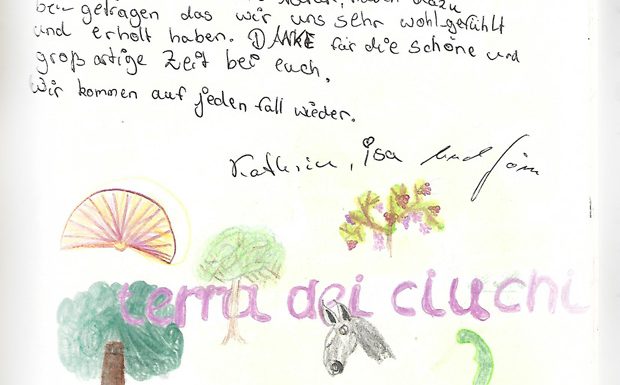 haben dazu
bei getragen das wir uns sehr wohl gefühlt
und erholt haben. DANKE für die schöne und
großartige Zeit bei euch.
Wir kommen auf jeden fall wieder.
Kathrin, Isa und Jörn
terra dei ciuchi